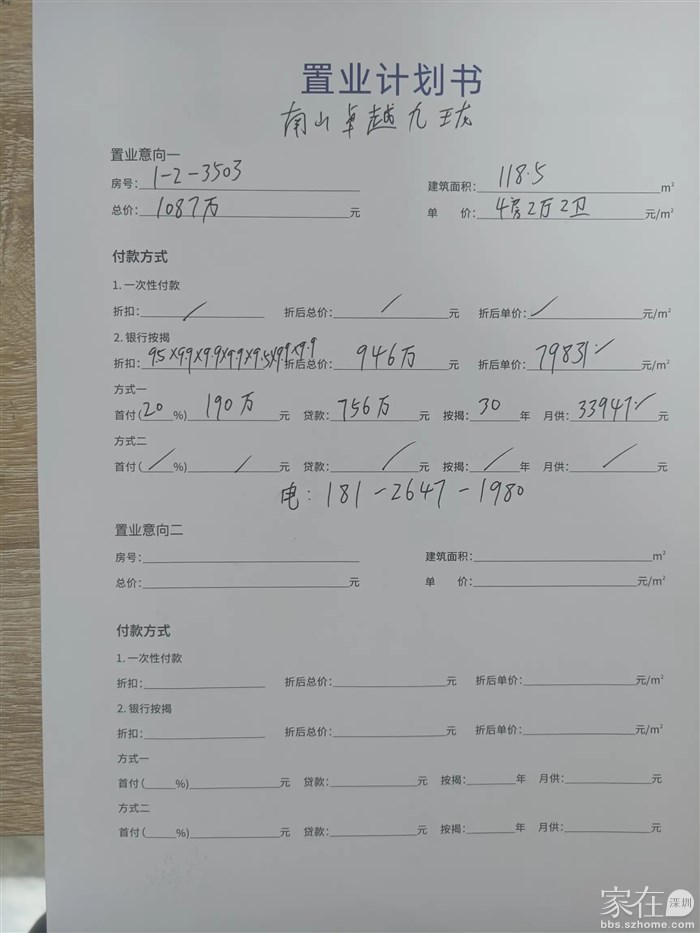 置业计划书
南山卓越九珑
置业意向一
房号: 1-2-3503 建筑面积: 118.5 m²
总价: 1087万 元 单 价: 4房2厅2卫 元/m²
付款方式
1. 一次性付款
折扣: / 折后总价: / 元 折后单价: / 元/m²
2. 银行按揭
折扣: 95×9.9×9.9×9.9×9.5×9.9×9.9 折后总价: 946万 元 折后单价: 79831 元/m²
方式一
首付(20 %) 190万 元 贷款: 756万 元 按揭: 30 年 月供: 33947 元
方式二
首付( / %) / 元 贷款: / 元 按揭: / 年 月供: / 元
电: 181-2647-1980
置业意向二
房号: 建筑面积: m²
总价: 元 单 价: 元/m²
付款方式
1. 一次性付款
折扣: 折后总价: 元 折后单价: 元/m²
2. 银行按揭
折扣: 折后总价: 元 折后单价: 元/m²
方式一
首付( %) 元 贷款: 元 按揭: 年 月供: 元
方式二
首付( %) 元 贷款: 元 按揭: 年 月供: 元
家在深圳
bbs.szhome.com